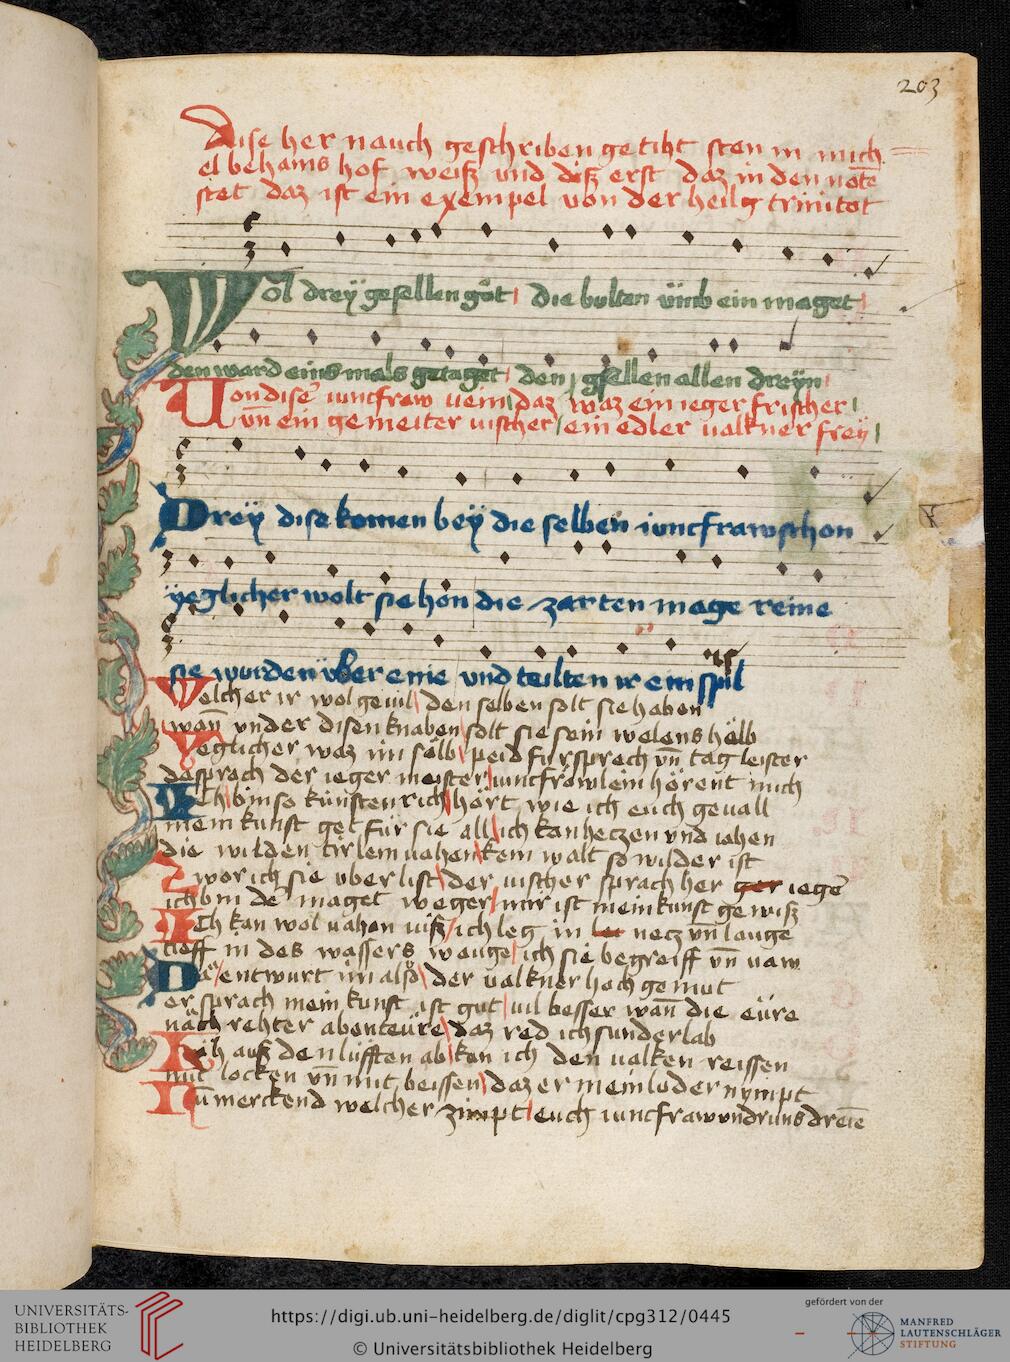 203
Dise her nauch geschriben getiht sten in mich
el behams hof weiß und diß erst daz in den note
stet daz ist ein exempel von der heilg trinitot
Wol dreÿ gesellen gůt die bulten ümb ein maget
den ward eins mals getaget den gsellen allen dreÿn
Von diser iuncfraw vein daz waz ein ieger frischer
vn̄ ein gemeiter vischer ein edler valkner freÿ
Dreÿ dise komen beÿ die selben iuncfraw schon
ÿeglicher wolt sie hon die zarten mage reine
sie wurden über eine vnd teilten ir ein spil
Welcher ir wol geuil den selben solt sie haben
wan̄ vnder disen knaben solt sie sein welens hälb
Yeglicher waz im selb fursprech vn̄ tag leister
do sprach der ieger meister iuncfrowlein hörent mich
Ich bin so künsten rich hört wie ich euch geuall
mein kunst get für sie all ich kan heczen vnd iahen
die wilden tirlein vahen kein walt so wilder ist
zwor ich sie vberlist der vischer sprach her ger iege
ich bin de maget weger mir ist mein kunst gewiß
Ich kan wol vahen viß ich leg in necz vn̄ lauge
tieff in des wassers wouge ich sie begreiff vn̄ vaw
Do entwurt im also der valkner hoch gemut
er sprach mein kunst ist gut vil besser wan̄ die eüre
nach rehter abenteüre daz red ich sunder lab
Hoh auß den lüfften ab kan ich den valken reissen
mit locken vn̄ mit beissen daz er mein luder nympt
Nu merckend welcher zimpt euch iuncfraw vndr uns dreie
UNIVERSITÄTS-
BIBLIOTHEK
HEIDELBERG
https://digi.ub.uni-heidelberg.de/diglit/cpg312/0445
© Universitätsbibliothek Heidelberg
gefördert von der
MANFRED
LAUTENSCHLÄGER
STIFTUNG